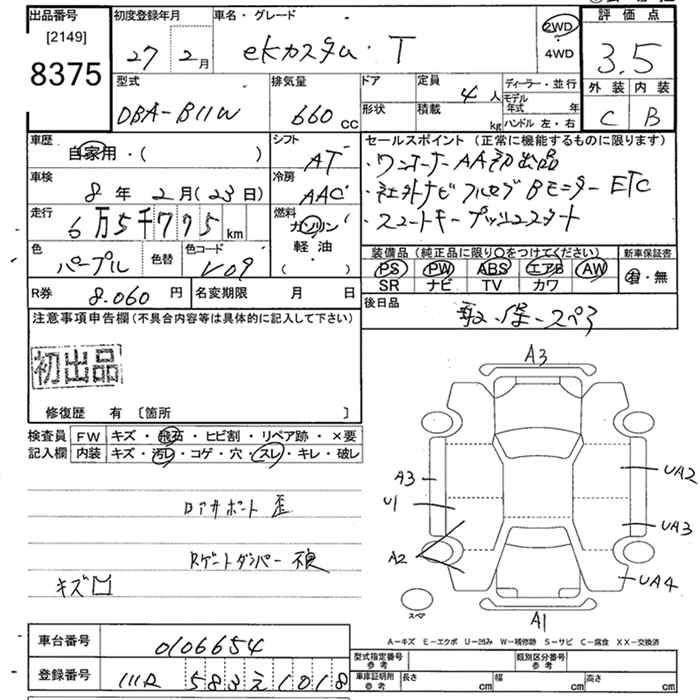 出品番号
[2149]
8375
初度登録年月
27 2月
車名・グレード
ekカスタム・T
2WD
4WD
評価点
3.5
外装 内装
C B
型式
DBA-B11W
排気量
660 cc
ドア
形状
定員
4人
積載
kg
ディーラー・並行
モデル年式 年
ハンドル 左・右
車歴
自家用・( )
シフト
AT
車検
8年 2月(23日)
冷房
AAC
走行
6万5千775km
燃料
ガソリン
軽油
( )
色
パープル
色替
色コード
V09
R券 8.060円
名変期限 月 日
セールスポイント(正常に機能するものに限ります)
・ワンオーナー AA初出品
・社外ナビ フルセグ Bモニター ETC
・スマートキー プッシュスタート
装備品(純正品に限り○をつけてください)
PS PW ABS エアB AW
SR ナビ TV カワ
新車保証書
有・無
後日品
取・保・スペア
注意事項申告欄(不具合内容等は具体的に記入して下さい)
初出品
修復歴 有〔箇所 〕
検査員記入欄
FW キズ・飛石・ヒビ割・リペア跡・×要
内装 キズ・汚レ・コゲ・穴・スレ・キレ・破レ
ロアサポート 歪
Rゲートダンパー 不良
キズ凹
A3
A3
U1
A2
UA2
UA3
UA4
A1
スペア
A-キズ E-エクボ U-凹み W-補修跡 S-サビ C-腐食 XX-交換済
車台番号
0106654
登録番号
583え1018
型式指定番号 参考
類別区分番号 参考
車庫証明用 参考
長さ cm 幅 cm 高さ cm